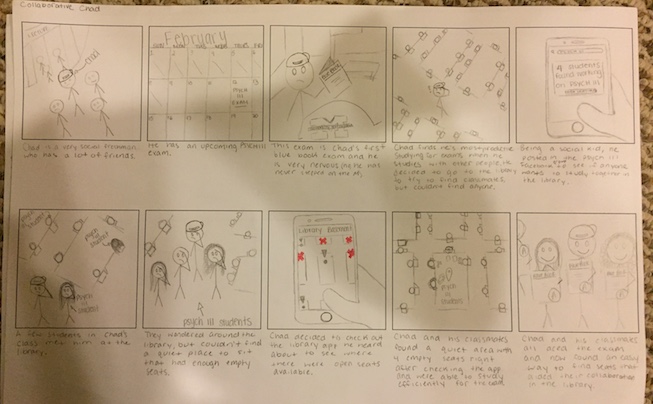 Collaborative Chad
Chad is a very social freshman
who has a lot of friends.
February
He has an upcoming Psych 111
exam.
PSYCH
111
EXAM
This exam is Chad's first
blue book exam and he
is very nervous
Chad finds he's most
studying for exams when he
studies with other people. He
decided to go to the library
to try to find classmates,
but couldn't find anyone.
4 students
found working
on PSYCH 111
Being a social kid, he
posted in the Psych 111
to see if anyone
wants to study together in
the library.
psych 111
student
psych 111
student
psych 111
student
A few students in Chad's
class met him at the
library.
psych 111 students
They wandered around the
library, but couldn't find
a quiet place to sit
that had enough empty
seats.
Library
Chad decided to check out
the library app he heard
about to see where
there were open seats
available.
psych
111
students
Chad and his classmates
found a quiet area with
4 empty seats right
after checking the app
and were able to study
efficiently for the exam.
Chad and his classmates
all aced the exam
and now found an easy
way to find seats that
aided their collaboration
in the library.